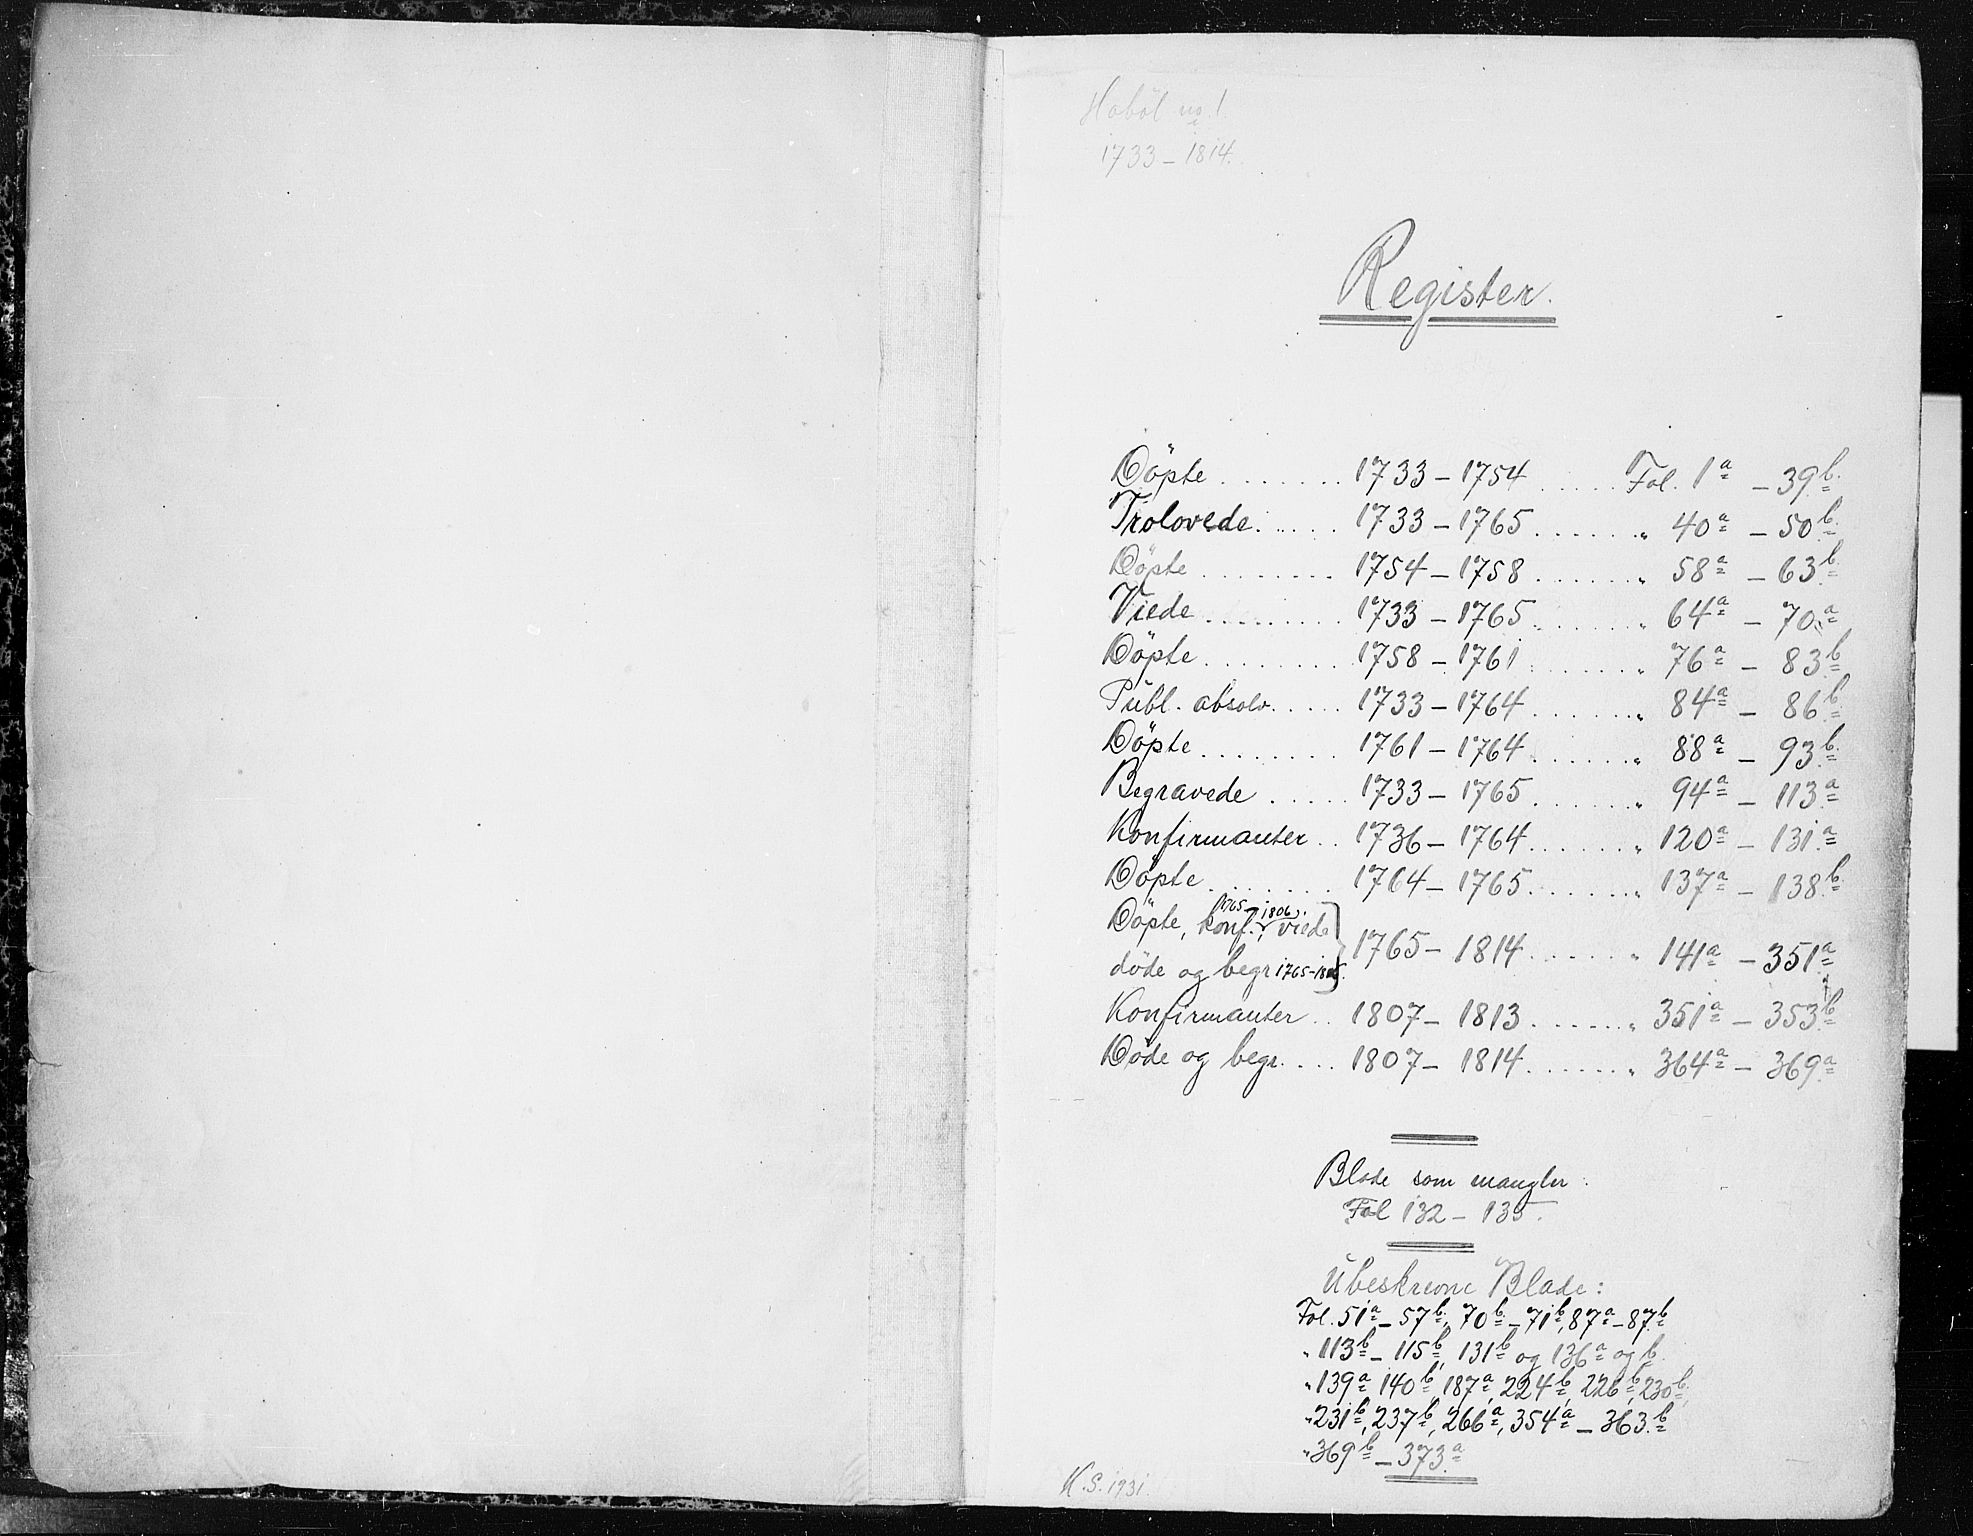 Hobøl no. 1.
1733 – 1814.
Register.
Döpte ........ 1733 – 1754 ...... Fol. 1a – 39b.
Trolovede ...... 1733 – 1765 ....... „ 40a – 50b.
Döpte ......... 1754 – 1758 ....... „ 58a – 63b
Viede ......... 1733 – 1765 ....... „ 64a – 70a
Döpte ......... 1758 – 1761 ....... „ 76a – 83b
Publ. absolv. .... 1733 – 1764 ....... „ 84a – 86b
Döpte ......... 1761 – 1764 ....... „ 88a – 93b.
Begravede ..... 1733 – 1765 ....... „ 94a – 113a
Konfirmanter .. 1736 – 1764 ....... „ 120a – 131a
Döpte ........ 1764 – 1765 ....... „ 137a – 138b
1765 – 1806.
Döpte, konf., viede
døde og begr 1765-1806. } 1765 – 1814 ...... „ 141a – 351a
Konfirmanter .. 1807 – 1813 ...... „ 351a – 353b
Døde og begr. ... 1807 – 1814 ...... „ 364a – 369a
Blade som mangler:
Fol 132 – 135.
Ubeskrevne Blade:
Fol. 51a – 57b, 70b – 71b, 87a – 87b
„ 113b – 115b, 131b og 136a og b.
„ 139a, 140b, 187a, 224b, 226b, 230b,
„ 231b, 237b, 266a, 354a – 363b
„ 369b – 373a
K.S. 1931.